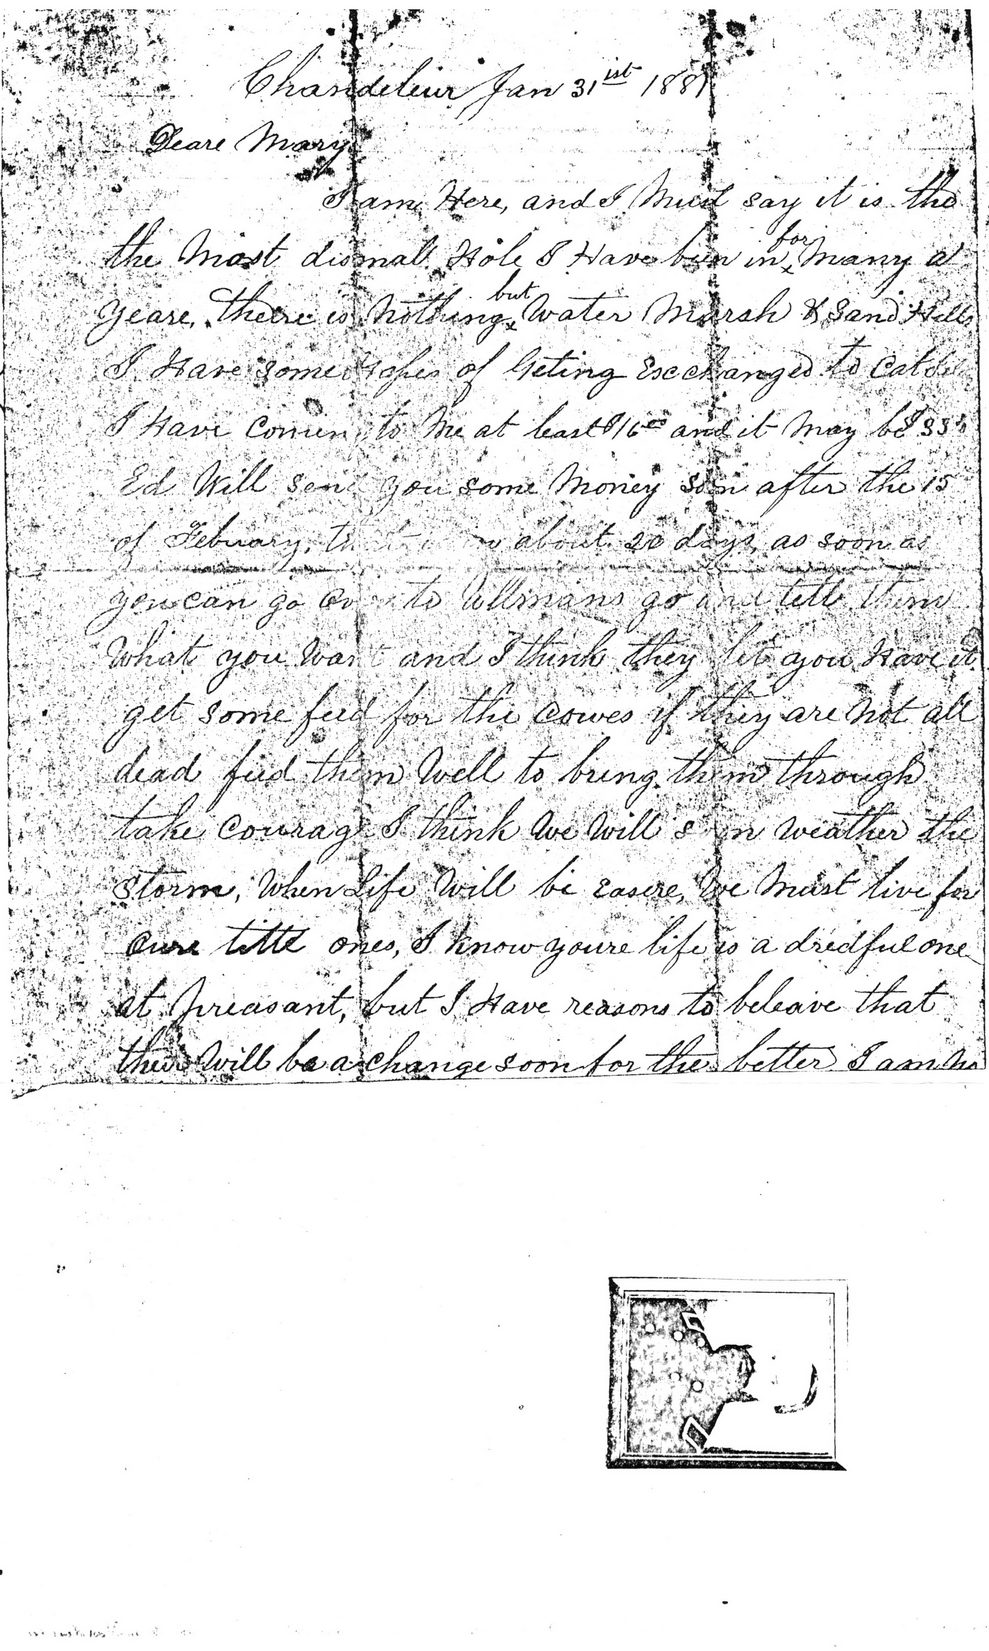 Chandeleur Jan 31ist 1881
Deare Mary
I am Here, and I Must say it is the
the Most dismall Hole I Have bun in for Many a
yeare, theere is Nothing but Water Marsh & Sand Hills
I Have some Hopes of Geting Excchanged to
I Have Comeing to Me at least $16 00 and it May be $33
Ed Will send you some Money soon after the 15
of Febuary, that is now about 20 days, as soon as
you can go over to Ullmans go and tell them
What you Want and I think they let you Have it
get some feed for the Cowes if they are Not all
dead feed them Well to bring them through
take Courage I think We Will soon weather the
Storm, When Life Will be easere, We Must live for
Oure littl ones, I know youre life is a dredful one
at preasant, but I Have reasons to beleave that
Will be a change soon for the better I am No